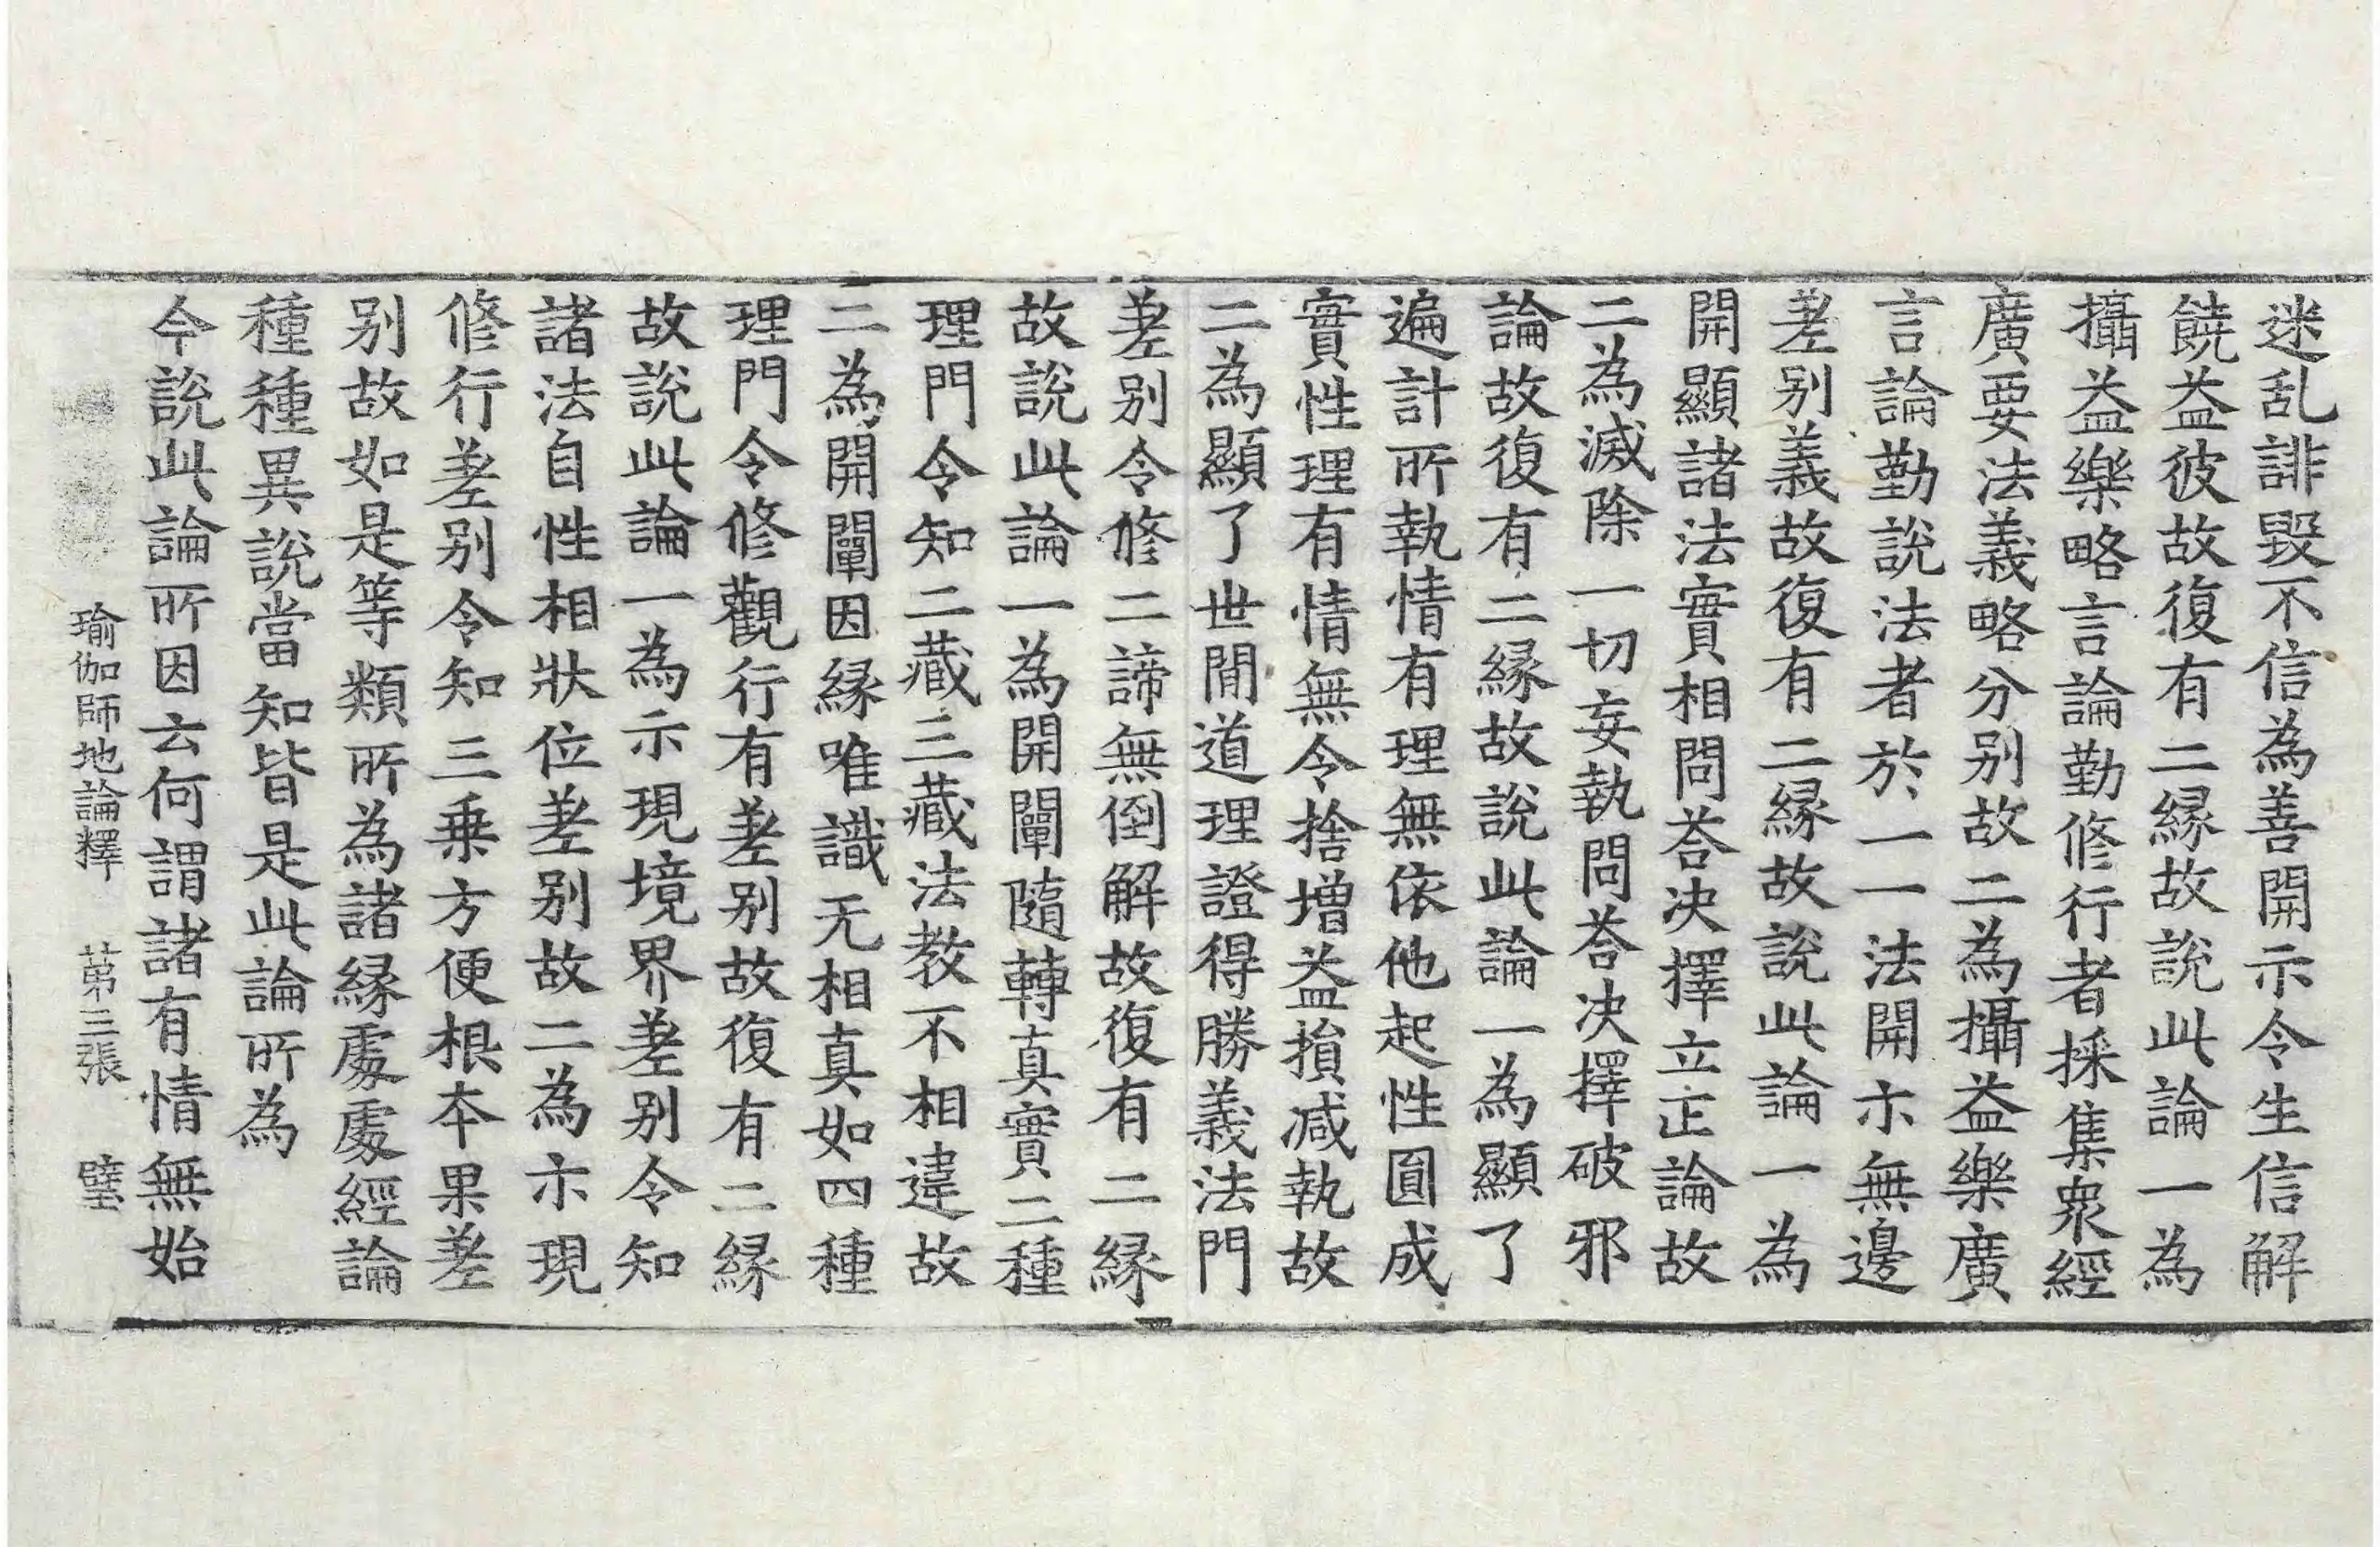 迷乱誹毀不信為善開示令生信解
饒益彼故復有二縁故説此論一為
攝益樂略言論勤修行者採集衆經
廣要法義略分别故二為攝益樂廣
言論勤説法者於一一法開示無邊
差别義故復有二縁故説此論一為
開顯諸法實相問荅决擇立正論故
二為滅除一切妄執問荅决擇破邪
論故復有二縁故説此論一為顯了
遍計所執情有理無依他起性圎成
實性理有情無令捨增益損减執故
二為顯了世間道理證得勝義法門
差别令修二諦無倒解故復有二縁
故説此論一為開闡隨轉真實二種
理門令知二藏三藏法教不相違故
二為開闡因縁唯識无相真如四種
理門令修觀行有差别故復有二縁
故説此論一為示現境界差别令知
諸法自性相狀位差别故二為示現
修行差别令知三乗方便根本果差
别故如是等類所為諸縁處處經論
種種異説當知皆是此論所為
今説此論所因云何謂諸有情無始
瑜伽師地論釋 苐三張 璧